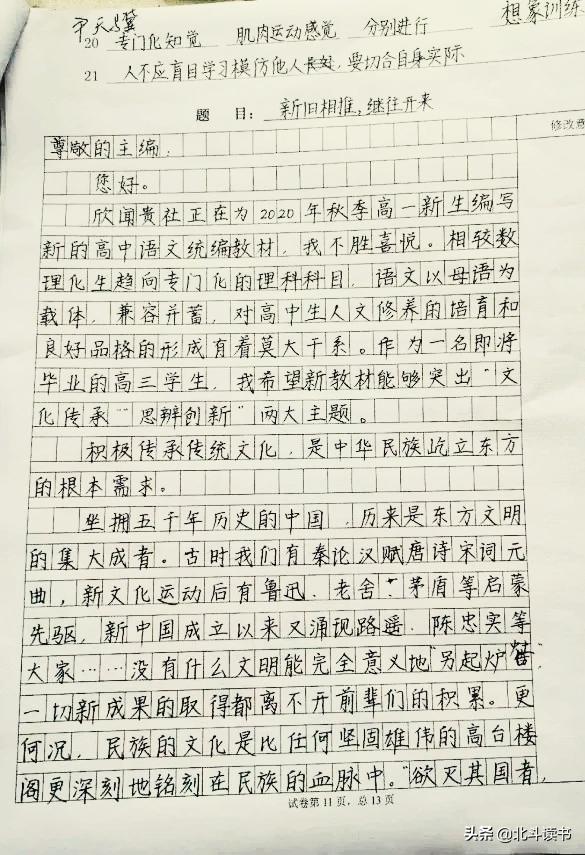 尹天翼
想象训练
20 专门化知觉 肌肉运动感觉 分别进行
21 人不应盲目学习模仿他人长处,要切合自身实际
题 目: 新旧相推,继往开来
修改意
尊敬的主编,
您好。
欣闻贵社正在为2020年秋季高一新生编写
新的高中语文统编教材,我不胜喜悦。相较数
理化生趋向专门化的理科科目,语文以母语为
载体,兼容并蓄,对高中生人文修养的培育和
良好品格的形成有着莫大干系。作为一名即将
毕业的高三学生,我希望新教材能够突出“文
化传承”“思辨创新”两大主题。
积极传承传统文化,是中华民族屹立东方
的根本需求。
坐拥五千年历史的中国,历来是东方文明
的集大成者。古时我们有秦论汉赋唐诗宋词元
曲,新文化运动后有鲁迅、老舍、茅盾等启蒙
先驱,新中国成立以来又涌现路遥、陈忠实等
大家……没有什么文明能完全意义地“另起炉灶”,
一切新成果的取得都离不开前辈们的积累。更
何况,民族的文化是比任何坚固雄伟的高台楼
阁更深刻地铭刻在民族的血脉中。“欲灭其国者,
试卷第11页,总13页
头条@北斗读书